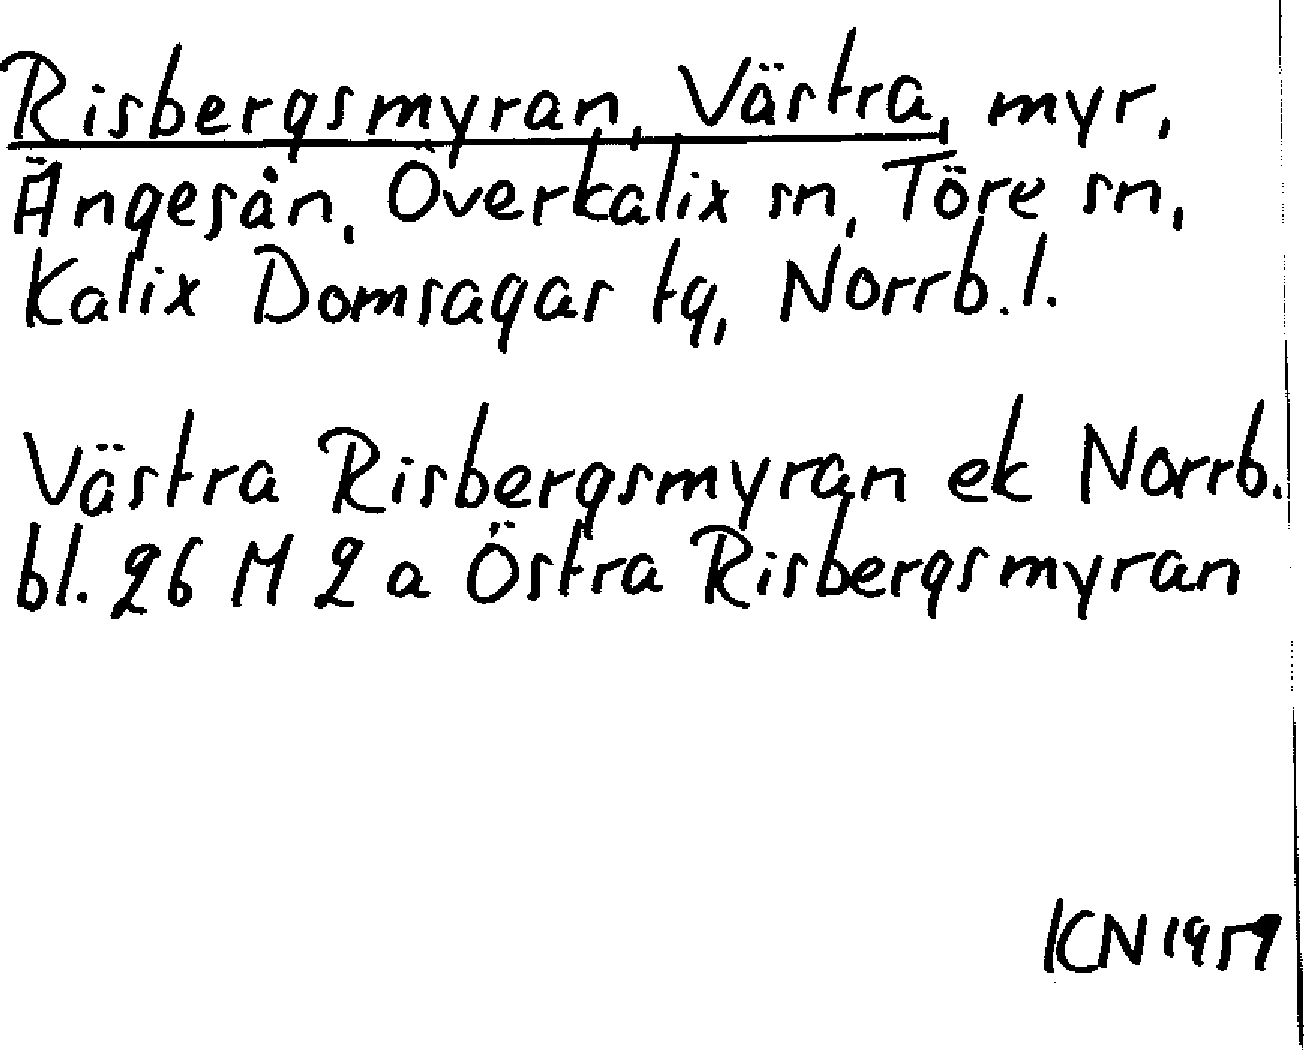 Risbergsmyran, Västra, myr,
Ängesån, Överkalix sn, Töre sn,
Kalix Domsagas tg, Norrb. l.
Västra Risbergsmyran ek Norrb.
bl. 26 M 2 a Östra Risbergsmyran
KCN 1959